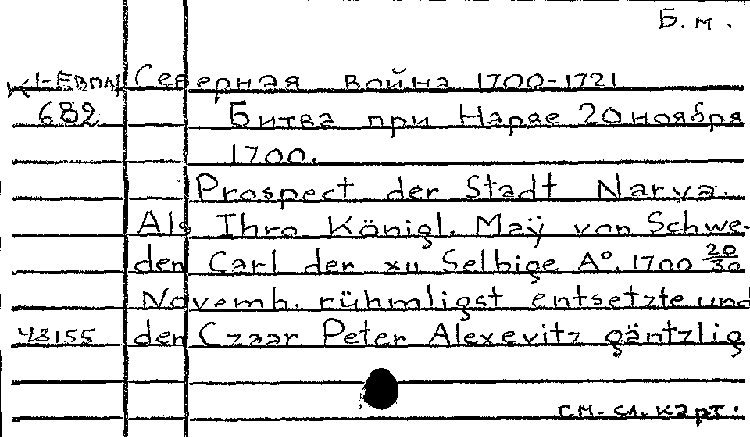 Б.м.
К 1-Евпл Северная война 1700-1721
682 Битва при Нарве 20 ноября
1700.
Prospect der Stadt Narva.
Als Ihro Königl. Maÿ von Schwe-
den Carl der XII Selbige A°. 1700 20/30
Novemb. rühmligst entsetzte und
43155 den Czaar Peter Alexevitz gäntzlig
см. сл. карт.